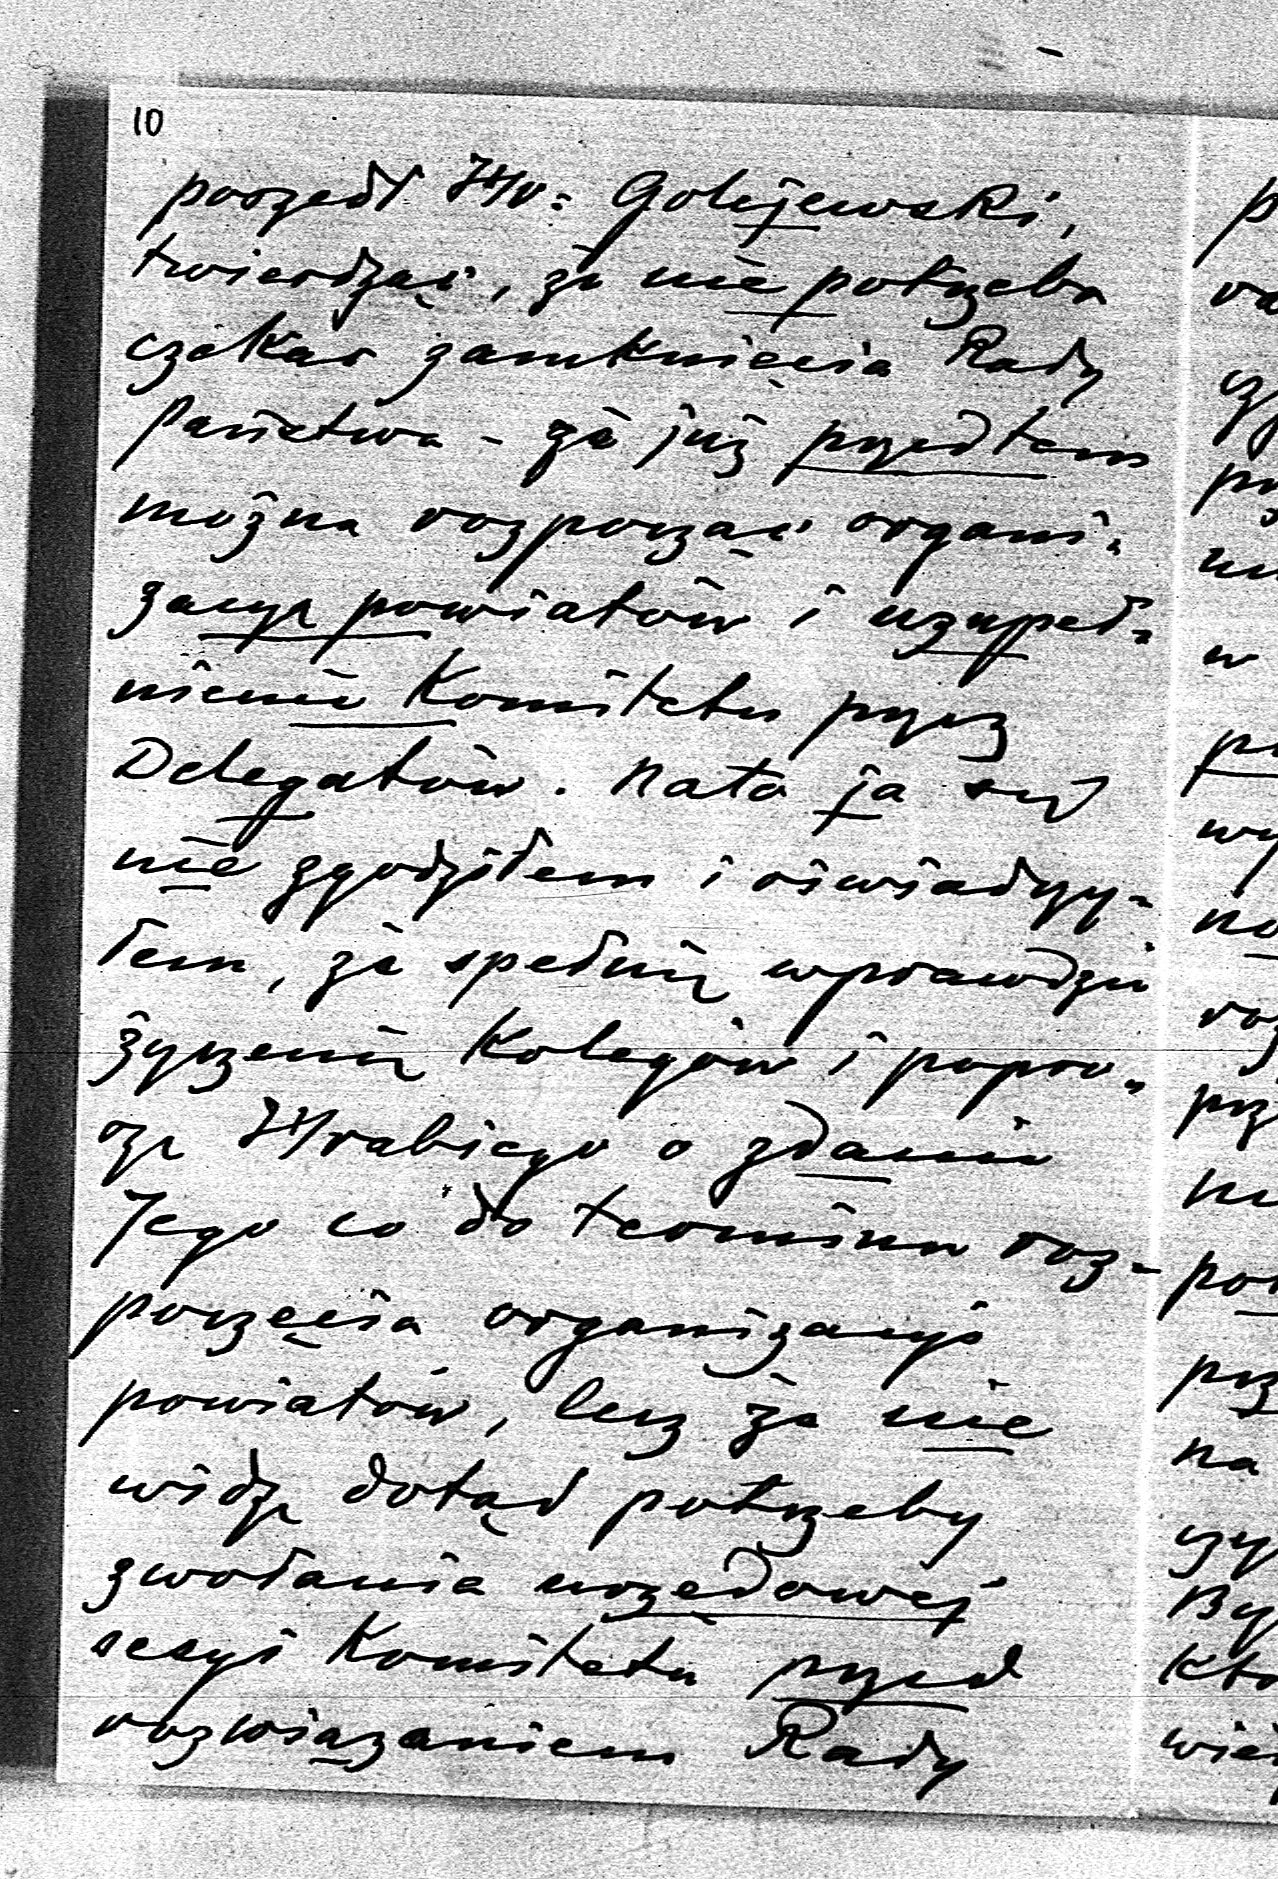 10
poszedł Hr: Golejewski,
twierdząc, że nie potrzeba
czekać zamknięcia Rady
Państwa - że już przedtem
można rozpocząć organi-
zacyę powiatów i uzupeł-
nienie Komitetu przez
Delegatów. Na to ja się
nie zgodziłem i oświadczy-
łem, że spełnię wprawdzie
życzenie Kolegów i popro-
szę Hrabiego o zdanie
Jego co do terminu roz-
poczęcia organizacyi
powiatów, lecz że nie
widzę dotąd potrzeby
zwołania urzędowej
sesyi Komitetu przed
rozwiązaniem Rady